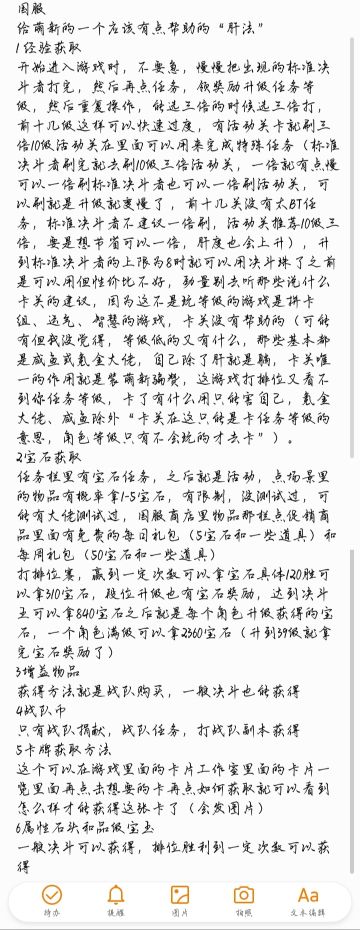 国服
给萌新的一个应该有点帮助的“肝法”
1经验获取
开始进入游戏时，不要急，慢慢把出现的标准决
斗者打完，然后再点任务，领奖励升级任务等
级，然后重复操作，能选三倍的时候选三倍打，
前十几级这样可以快速过度，有活动关卡就刷三
倍10级活动关在里面可以用来完成特殊任务（标准
决斗者刷完就去刷10级三倍活动关，一倍就有点慢
可以一倍刷标准决斗者也可以一倍刷活动关，可
以刷就是升级就变慢了，前十几关没有太BT任
务，标准决斗者不建议一倍刷，活动关推荐10级三
倍，要是想节省可以一倍，肝度也会上升），升
到标准决斗者的上限为8时就可以用决斗珠了之前
是可以用但性价比不好，劲量别去听那些说什么
卡关的建议，因为这不是玩等级的游戏是拼卡
组、运气、智慧的游戏，卡关没有帮助的（可能
有但我没觉得，等级低的又有什么，那些基本都
是咸鱼或氪金大佬，自己除了肝就是躺，卡关唯
一的作用就是装萌新骗赞，这游戏打排位又看不
到你任务等级，卡了有什么用只能害自己，氪金
大佬、咸鱼除外“卡关在这只能是卡任务等级的
意思，角色等级只有不会玩的才去卡”）。
2宝石获取
任务栏里有宝石任务，之后就是活动，点场景里
的物品有概率拿1-5宝石，有限制，没测试过，可
能有大佬测试过，国服商店里物品那栏点促销商
品里面有免费的每日礼包（5宝石和一些道具）和
每周礼包（50宝石和一些道具）
打排位赛，赢到一定次数可以拿宝石具体120胜可
以拿310宝石，段位升级也有宝石奖励，达到决斗
王可以拿840宝石之后就是每个角色升级获得的宝
石，一个角色满级可以拿2360宝石（升到39级就拿
完宝石奖励了）
3增益物品
获得方法就是战队购买，一般决斗也能获得
4战队币
只有战队捐献，战队任务，打战队副本获得
5卡牌获取方法
这个可以在游戏里面的卡片工作室里面的卡片一
览里面再点击想要的卡再点如何获取就可以看到
怎么样才能获得这张卡了（会发图片）
6属性石头和品级宝玉
一般决斗可以获得，排位胜利到一定次数可以获
得
待办 提醒 图片 拍照 Aa 文本编辑